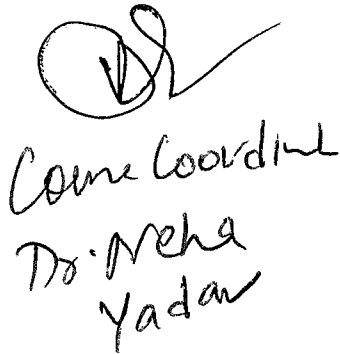 Course Coordin
Dr. Neha
Yadav